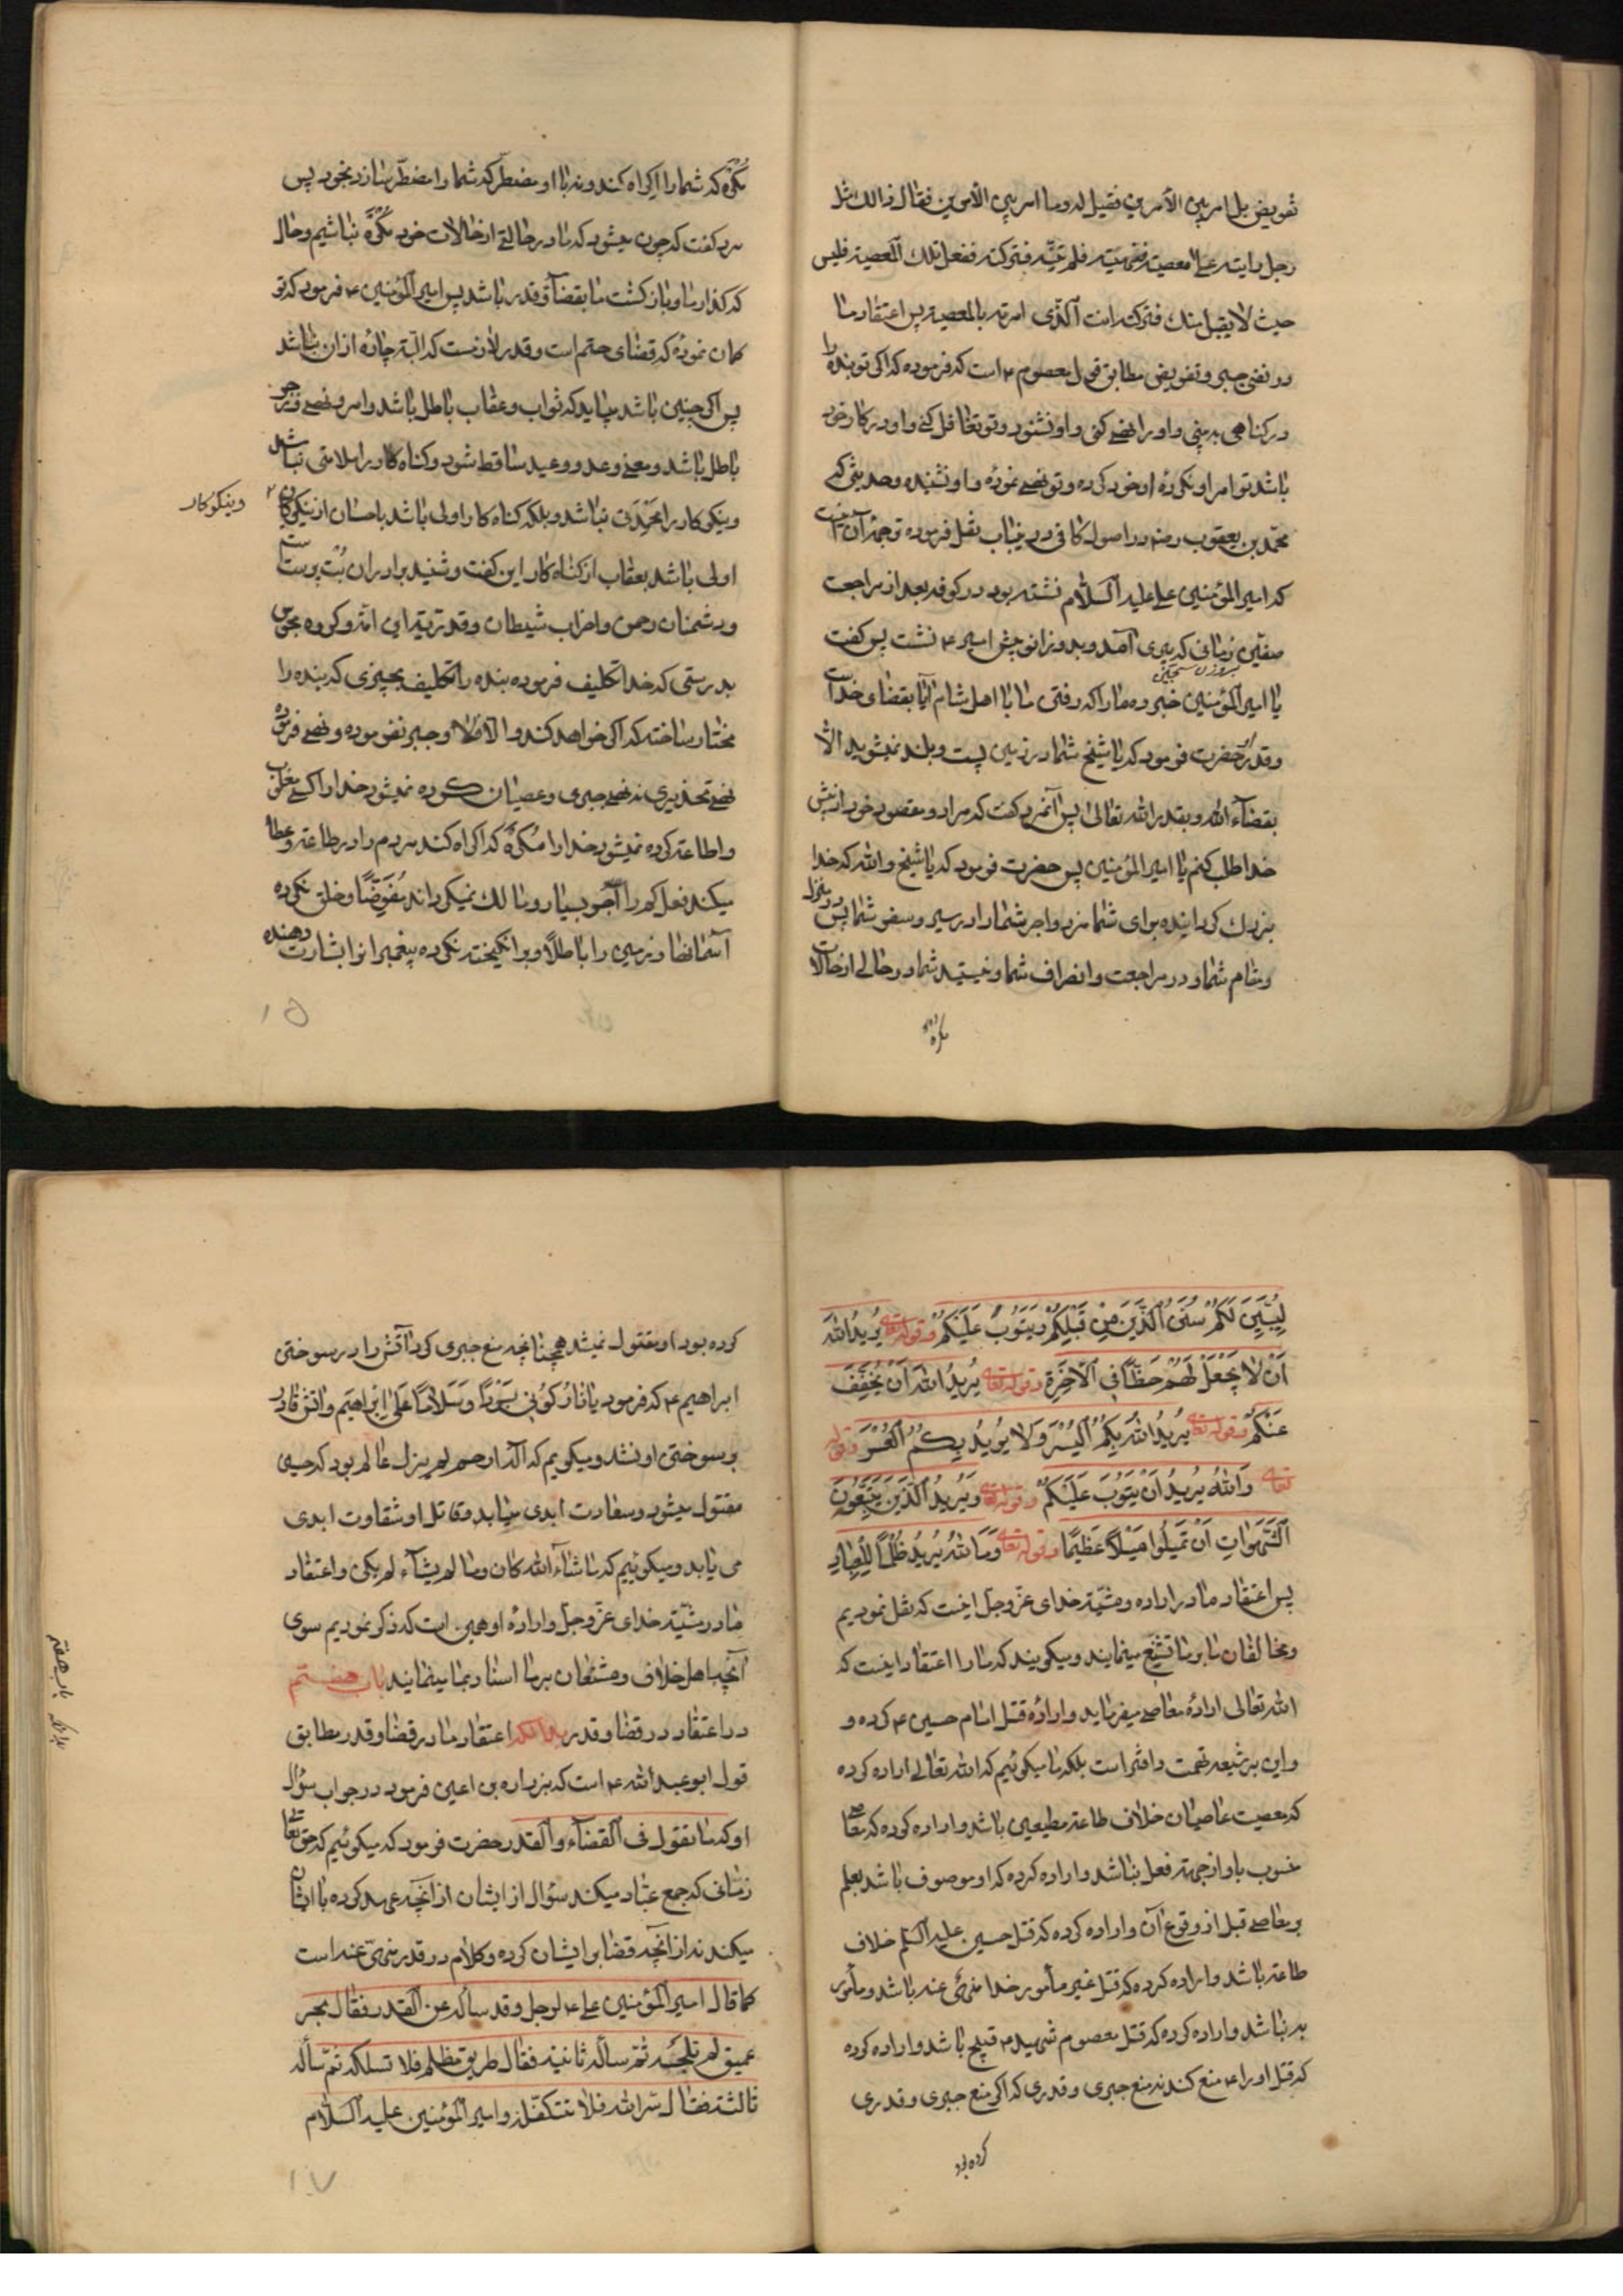 تفویض بل امر بین الأمرین فقیل له وما امر بین الأمرین فقال ذالك مثل
رجل رایته علی المعصیة فنهیته فلم ینته فترکته ففعل تلك المعصیة فلیس
حیث لا یقبل منك فترکته انت الذی امرته بالمعصیة پس اعتقاد ما
در نفی جبر و تفویض مطابق قول معصوم ۴ است که فرموده که اکر تو بنده را
در کناهی به بینی و او را نهی کنی و او نشنود و تو تغافل کنی و او در کار خود
باشد تو امر او نکرده او خود کرده و تو نهی نموده و او نشنیده و حدیثی که
محمد بن یعقوب در اصول کافی درینباب نقل فرموده ترجمه آن اینست
که امیر المؤمنین علی علیه السلام نشسته بود در کوفه بعد از مراجعت
صفین زمانی که پیری آمد و بدو زانو پیش امیر ۴ نشست پس کفت
یا امیر المؤمنین خبر ده ما را که رفتن ما با اهل شام آیا بقضای خداست
و قدر او حضرت فرمود که یا شیخ شما در زمین پست و بلند نمیشوید الا
بقضاء الله و بقدر الله تعالی پس آنمرد کفت که مراد و مقصود خود از پیش
خدا طلب کنم یا امیر المؤمنین پس حضرت فرمود که یا شیخ والله که خدا
بزرك کرداینده برای شما مزد و اجر شما را در سیر و سفر شما پس در منزل
و مقام شما و در مراجعت و انصراف شما و نیستید شما در حالی از حالات
مکره
مکره که شما را اکراه کند و نه با او مضطر که شما را مضطر سازد بخود پس
مرد کفت که چون میشود که ما در حالتی از حالات خود مکره نباشیم و حال
که کذار ما و باز کشت ما بقضا و قدر باشد پس امیر المؤمنین ۴ فرمود که تو
کمان نموده که قضای حتم است و قدر لازمست که البته چاره از ان نباشد
پس اکر چنین باشد میباید که ثواب و عقاب باطل باشد و امر و نهی و زجر
باطل باشد و معنی وعد و وعید ساقط شود و کناه کار را ملامتی نباشد
و نیکو کار را محمدتی نباشد و بلکه کناه کار اولی باشد باحسان از نیکوکار
و نیکو کار
اولی باشد بعقاب از کناه کار این کفت و شنید برادران بت پرستست
و دشمنان رحمن و احزاب شیطان و قدریه این امة و کروه مجوس
بدرستی که خدا تکلیف فرموده بنده را تکلیف بچیزی که بنده را
مختار ساخته که اکر خواهد کند و الا فلا و جبر نفرموده و نهی فرموده
نهی تحذیری نه نهی جبری و عصیان کرده نمیشود خدا را کسی مغلوب
و اطاعت کرده نمیشود خدا را مکره که اکراه کند مردم را در طاعت و عطا
میکند فعل کم را اجر بسیار و مالك نمیکرداند مفوضا و خلق نکرده
آسمانها و زمین را باطلا و برانکیخته نکرده پیغمبرانرا بشارت دهنده
۱۵
لیبین لکم سنن الذین من قبلکم ویتوب علیکم وقوله تعالی یرید الله
ان لا یجعل لهم حظا فی الآخرة وقوله تعالی یرید الله ان یخفف
عنکم وقوله تعالی یرید الله بکم الیسر ولا یرید بکم العسر وقوله
تعالی والله یرید ان یتوب علیکم وقوله تعالی ویرید الذین یتبعون
الشهوات ان تمیلوا میلا عظیما وقوله تعالی وما الله یرید ظلما للعباد
پس اعتقاد ما در اراده و مشیة خدای عز وجل اینست که نقل نمودیم
و مخالفان ما بر ما تشنیع مینمایند و میکویند که ما را اعتقاد اینست که
الله تعالی اراده معاصی میفرماید و اراده قتل امام حسین ۴ کرده و
و این بر شیعه تهمت و افتراست بلکه ما میکوئیم که الله تعالی اراده کرده
که معصیت عاصیان خلاف طاعت مطیعین باشد و اراده کرده که معاصی
منسوب باو از جهة فعل نباشد و اراده کرده که او موصوف باشد بعلم
بمعاصی قبل از وقوع آن و اراده کرده که قتل حسین علیه السلم خلاف
طاعت باشد و اراده کرده که قتل غیر مأمور خدا منهی عنه باشد و مأمور
به نباشد و اراده کرده که قتل معصوم شهید ۴ قبیح باشد و اراده کرده
که قتل او را ۴ منع کند نه منع جبری و قدری که اکر منع جبری و قدری
کرده بود
کرده بود او مقتول نمیشد همچنانچه منع جبری کرد آتش را در سوختن
ابراهیم ۴ که فرمود یا نار کونی بردا وسلاما علی ابراهیم و اتش قادر
بر سوختن او نشد و میکویم که الله ارحم لم یزل عالم بود که حسین
مقتول میشود و سعادت ابدی میابد و قاتل او شقاوت ابدی
می یابد و میکوئیم که ما شاء الله کان وما لم یشاء لم یکن و اعتقاد
ما در مشیة خدای عز وجل و اراده او همین است که ذکر نمودیم سوی
آنچه اهل خلاف و مشنعان بر ما اسناد بما مینمایند باب هفتم
در اعتقاد در قضا و قدر بدانکه اعتقاد ما در قضا و قدر مطابق
باب هفتم
قول ابو عبد الله ۴ است که بزراره بن اعین فرمود در جواب سؤال
او که ما تقول فی القضاء والقدر حضرت فرمود که میکوئیم که حق تعالی
زمانی که جمع عباد میکند سؤال از ایشان از انچه عهد کرده با ایشان
میکند نه از انچه قضا بر ایشان کرده و کلام در قدر منهی عنه است
کما قال امیر المؤمنین علی ۴ لرجل وقد سأله عن القدر فقال بحر
عمیق لم تلجه ثم سأله ثانیة فقال طریق مظلم فلا تسلکه ثم سأله
ثالثة فقال سر الله فلا تتکلفه و امیر المؤمنین علیه السلام
۱۷